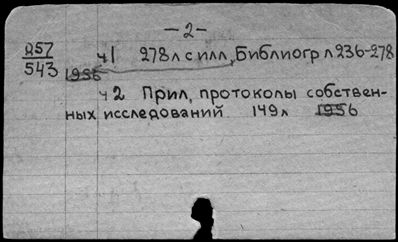 — 2 —
857
543
ч 1 278 л с илл, Библиогр л 236-278
1956
ч 2 Прил, протоколы собствен-
ных исследований 149 л 1956